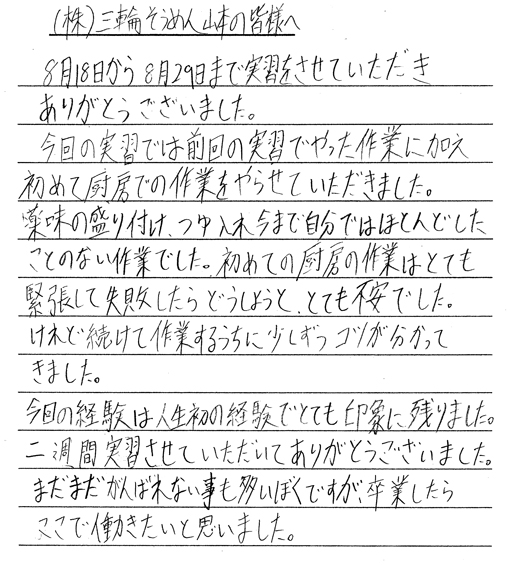 (株)三輪そうめん山本の皆様へ
8月18日から8月29日まで実習をさせていただき
ありがとうございました。
今回の実習では前回の実習でやった作業に加え
初めて厨房での作業をやらせていただきました。
薬味の盛り付け、つゆ入れ今まで自分ではほとんどした
ことのない作業でした。初めての厨房の作業はとても
緊張して失敗したらどうしようと、とても不安でした。
けれど続けて作業するうちに少しずつコツが分かって
きました。
今回の経験は人生初の経験でとても印象に残りました。
二週間実習させていただいてありがとうございました。
まだまだがんばれない事も多いぼくですが、卒業したら
ここで働きたいと思いました。